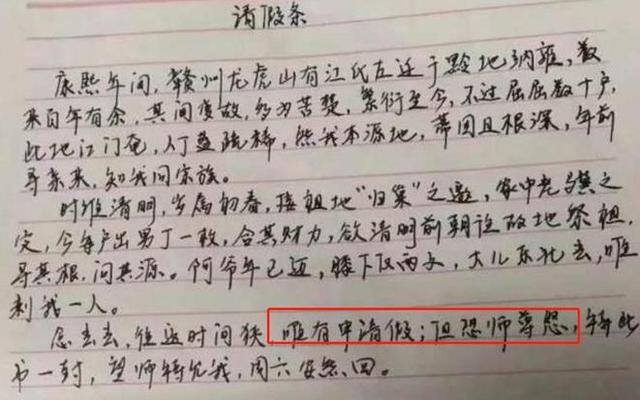 请假条
康熙年间,赣州龙虎山有江氏左迁于黔地纳雍,数
来百年有余,其间变故,多为苦楚,繁衍至今,不过屈屈数十户,
此地江门奄,人丁盈疏稀,然我本源地,蒂固且根深,年前
寻亲来,知我同宗族。
时维清明,岁属初春,接祖地“归集”之邀,家中老
定,今每户出男丁一枚,合其财力,欲清明前朝诣故地祭祖,
寻其根,问其源。阿爷年已迈,膝下仅两丈,大儿东北去,唯
剩我一人。
念去去,往返时间狭,唯有申请假;但恐师尊怒,特此
书一封,望师特允我,周六安然回。